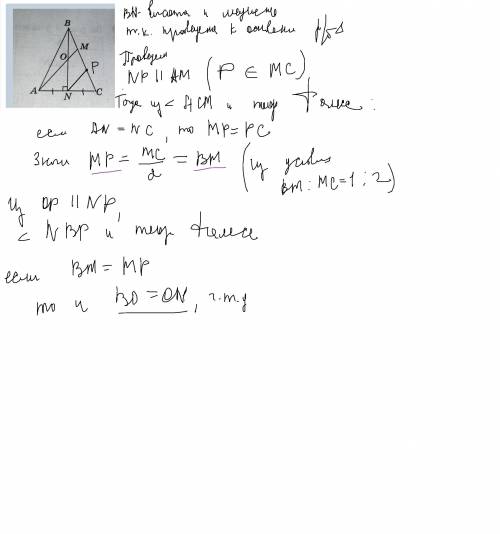 B
M
O
P
A
N
C
BN высота и медиана
т.к. проведена к основани р/б Δ
Проведем
NP || AM (P ∈ MC)
Тогда из < ACM и теор Фалеса:
если AN = NC, то MP = PC
Значит MP = MC/2 = BM (из условия
BM : MC = 1 : 2)
Из OP || NP,
< NBP и теор Фалеса
если BM = MP
то и BO = ON, ч.т.д